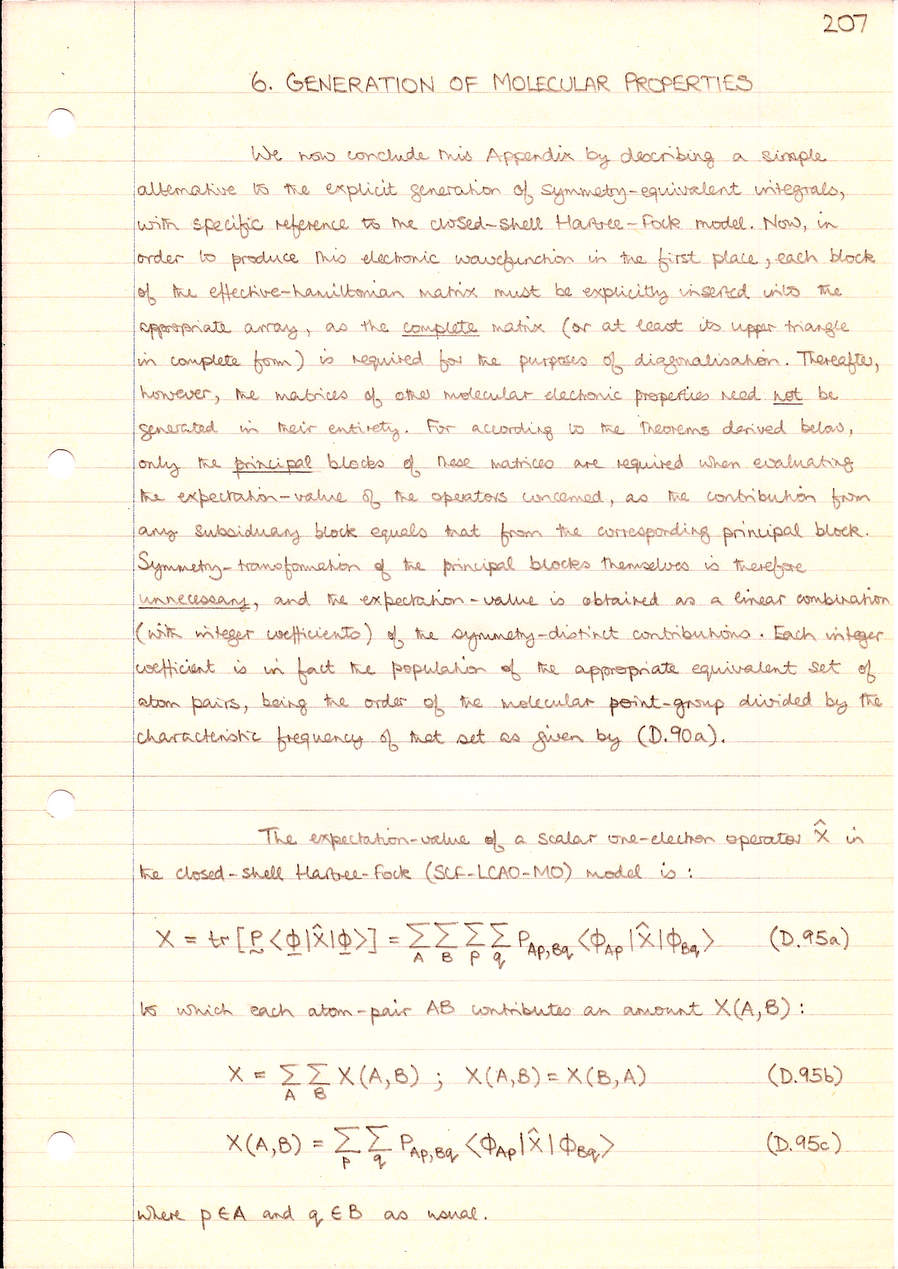 207
6. GENERATION OF MOLECULAR PROPERTIES
We now conclude this Appendix by describing a simple
alternative to the explicit generation of symmetry-equivalent integrals,
with specific reference to the closed-shell Hartree-Fock model. Now, in
order to produce this electronic wavefunction in the first place, each block
of the effective-hamiltonian matrix must be explicitly inserted into the
appropriate array, as the complete matrix (or at least its upper triangle
in complete form) is required for the purposes of diagonalisation. Thereafter,
however, the matrices of other molecular electronic properties need not be
generated in their entirety. For according to the Theorems derived below,
only the principal blocks of these matrices are required when evaluating
the expectation-value of the operators concerned, as the contribution from
any subsiduary block equals that from the corresponding principal block.
Symmetry-transformation of the principal blocks themselves is therefore
unnecessary, and the expectation-value is obtained as a linear combination
(with integer coefficients) of the symmetry-distinct contributions. Each integer
coefficient is in fact the population of the appropriate equivalent set of
atom pairs, being the order of the molecular point-group divided by the
characteristic frequency of that set as given by (D.90a).
The expectation-value of a scalar one-electron operator X̂ in
the closed-shell Hartree-Fock (SCF-LCAO-MO) model is:
X = tr[P̰<ϕ̲|X̂|ϕ̲>] = Σ_A Σ_B Σ_p Σ_q P_{Ap,Bq} <ϕ_{Ap}|X̂|ϕ_{Bq}> (D.95a)
to which each atom-pair AB contributes an amount X(A,B):
X = Σ_A Σ_B X(A,B) ; X(A,B) = X(B,A) (D.95b)
X(A,B) = Σ_p Σ_q P_{Ap,Bq} <ϕ_{Ap}|X̂|ϕ_{Bq}> (D.95c)
where p∈A and q∈B as usual.